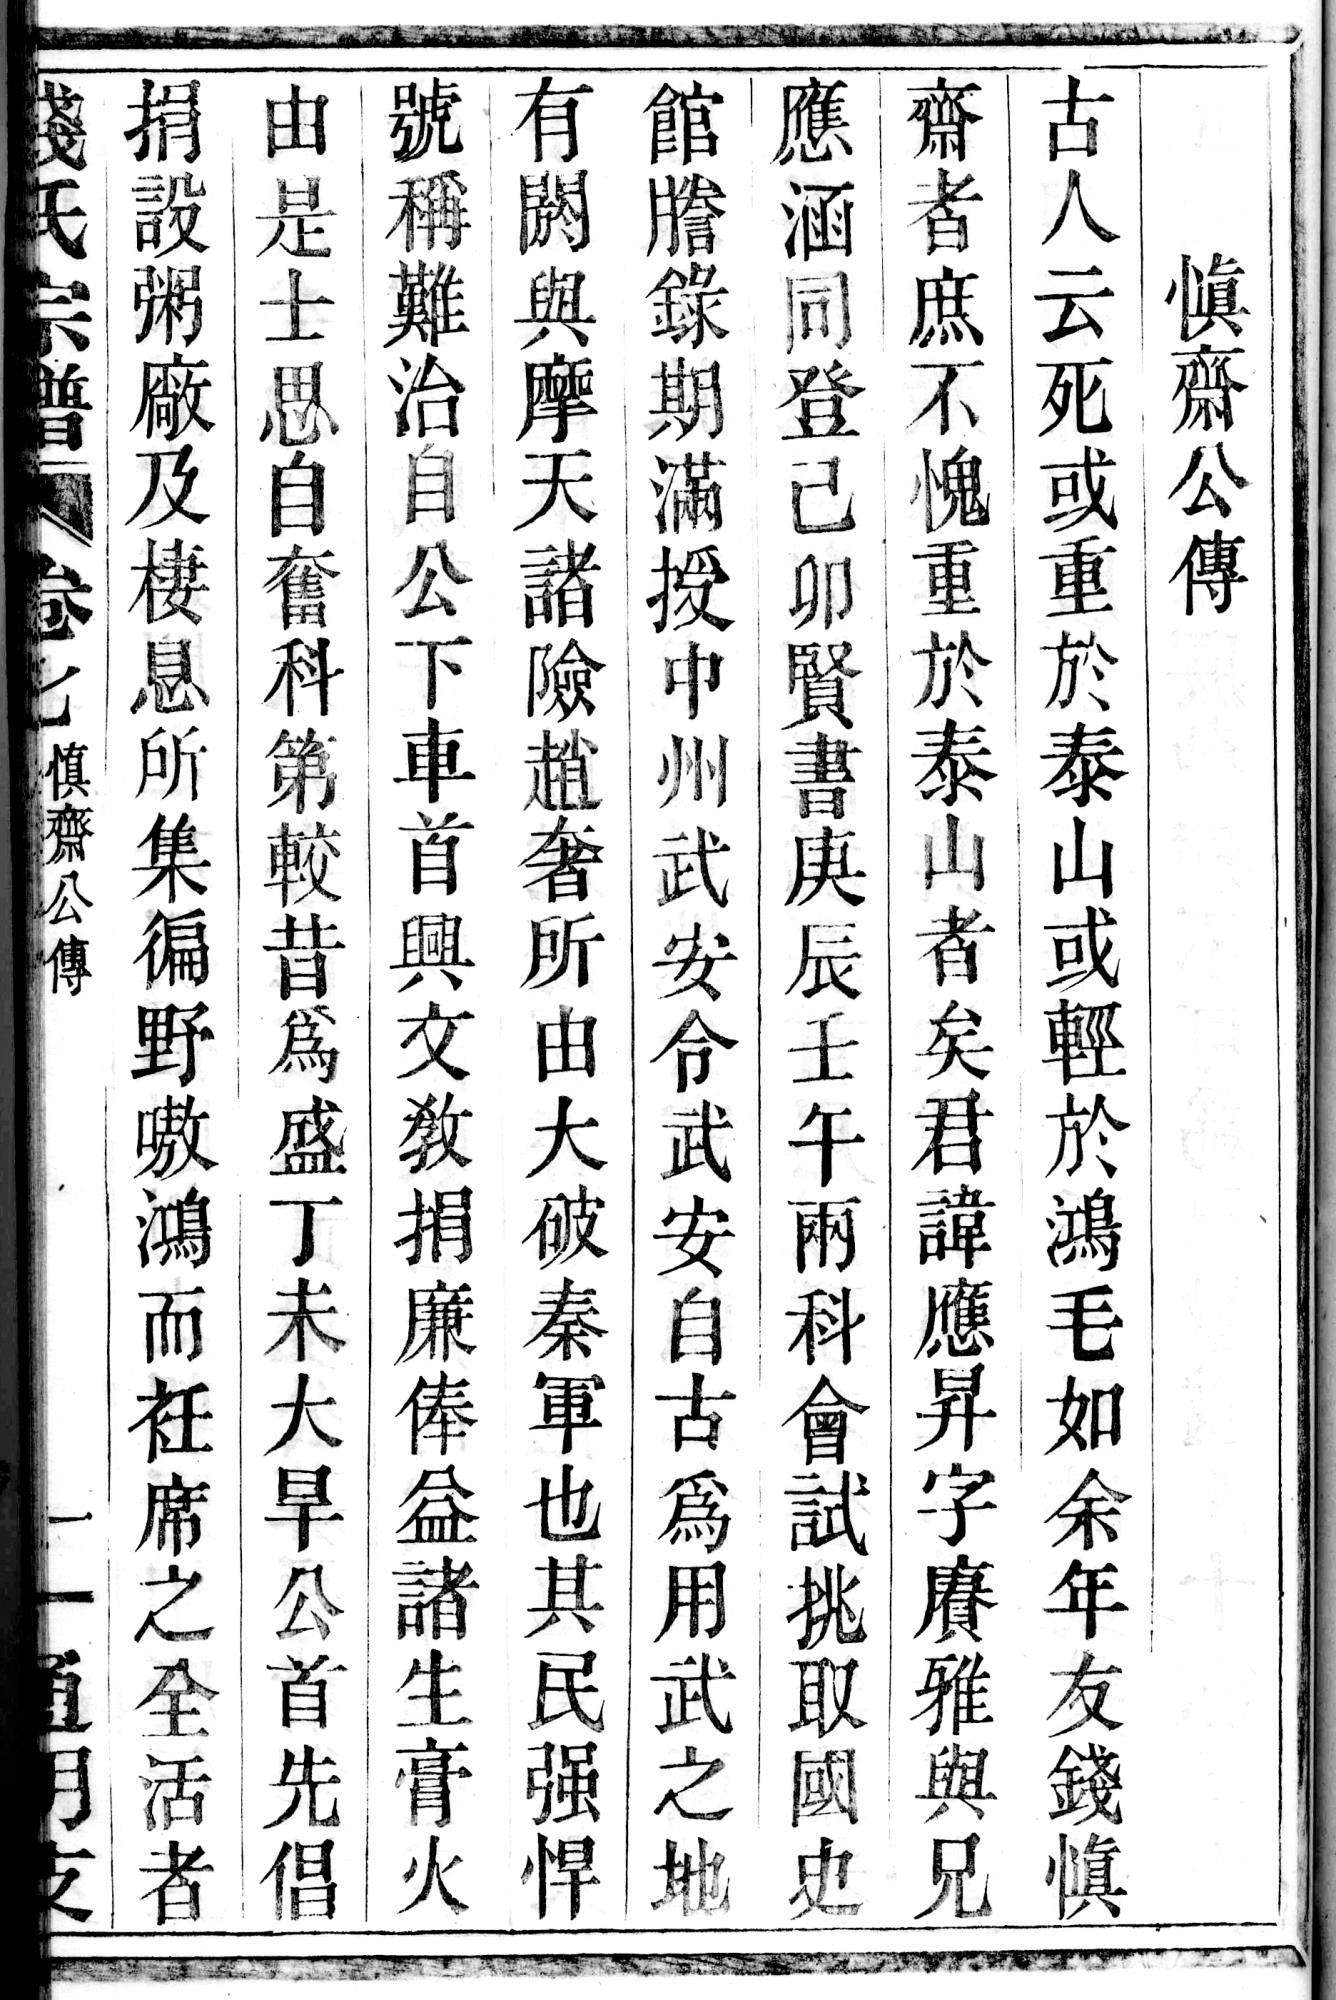 慎齋公傳
古人云死或重於泰山或輕於鴻毛如余年友錢慎
齋者庶不愧重於泰山者矣君諱應昇字賡雅與兄
應涵同登己卯賢書庚辰壬午兩科會試挑取國史
館謄錄期滿授中州武安令武安自古為用武之地
有閼與摩天諸險趙奢所由大破秦軍也其民强悍
號稱難治自公下車首興文教捐廉俸益諸生膏火
由是士思自奮科第較昔為盛丁未大旱公首先倡
捐設粥廠及棲息所集徧野嗷鴻而袵席之全活者
錢氏宗譜 卷七 慎齋公傳 二 通明支